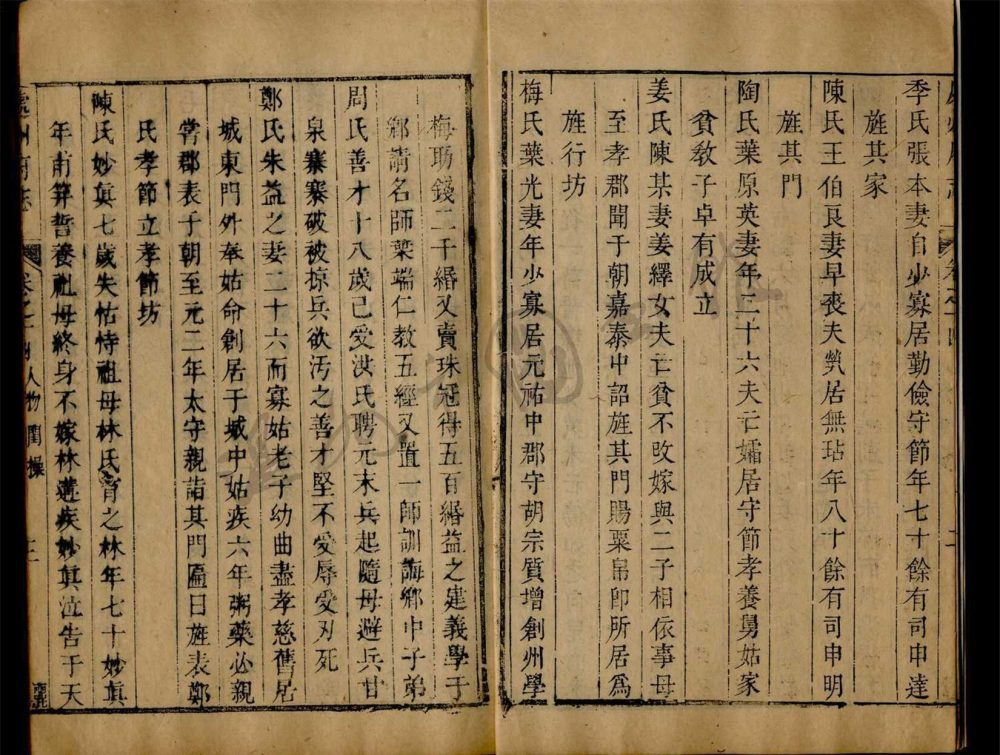 季氏張本妻自少寡居勤儉守節年七十餘有司申達
旌其家
陳氏王伯良妻早喪夫煢居無玷年八十餘有司申明
旌其門
陶氏葉原英妻年三十六夫亡孀居守節孝養舅姑家
貧敎子卓有成立
姜氏陳某妻姜繹女夫亡貧不改嫁與二子相依事母
至孝郡聞于朝嘉泰中詔旌其門賜粟帛卽所居爲
旌行坊
梅氏葉光妻年少寡居元祐中郡守胡宗質增創州學
梅助錢二千緡又賣珠冠得五百緡益之建義學于
鄕請名師葉端仁教五經又置一師訓誨鄕中子弟
周氏善才十八歲已受洪氏聘元末兵起隨母避兵甘
泉寨寨破被掠兵欲汚之善才堅不受辱受刃死
鄭氏朱益之妻二十六而寡姑老子幼曲盡孝慈舊居
城東門外奉姑命創居于城中姑疾六年粥藥必親
嘗郡表于朝至元二年太守親詣其門匾曰旌表鄭
氏孝節立孝節坊
陳氏妙眞七歲失怙恃祖母林氏育之林年七十妙眞
年甫笄誓養祖母終身不嫁林遘疾妙眞泣告于天
處州府志
卷之
人物閨操
三